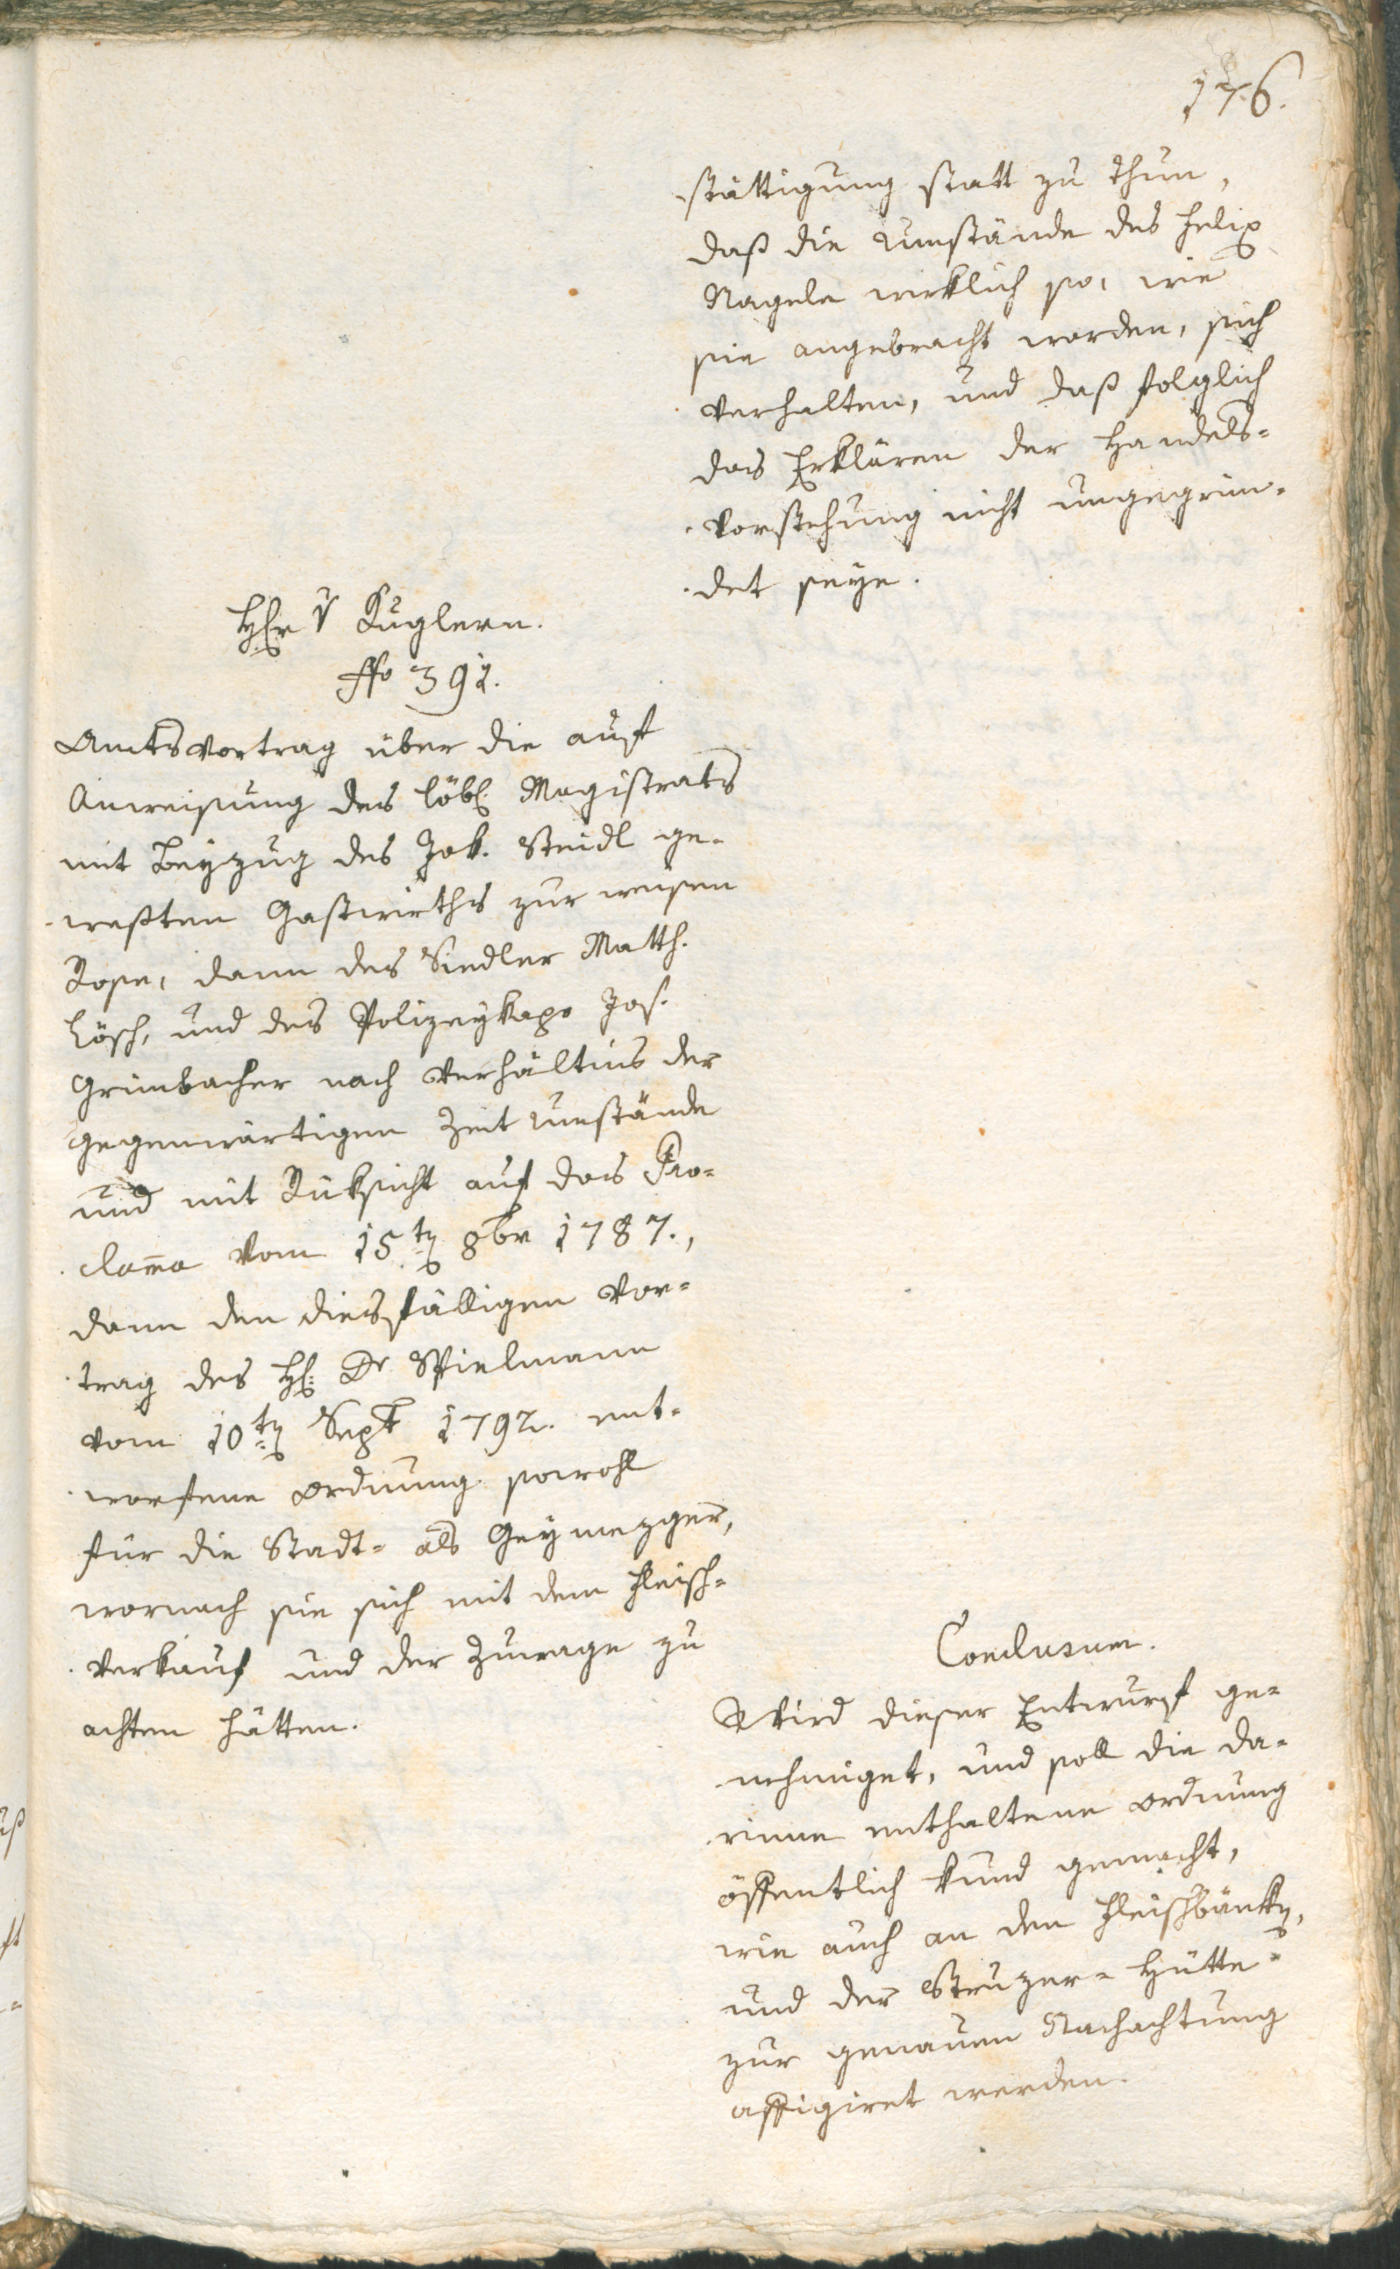 176.
stättigung statt zu thun,
daß die Umstände des Felix
Nagele wirklich so, wie
sie angebracht worden, sich
verhalten, und daß folglich
das Erklären der Handels-
vorstehung nicht ungegrün-
det seye.
H̅E̅r v Kuglern.
ffo 391.
Amtsvortrag über die auf
Anweisung des löbl. Magistrats
mit Beyzug des Jak. Steidl ge-
weßten Gastwirths zur weisen
Rose, dann des Siedler Matth.
Lösch, und des Polizeykapo Jos.
Grünbacher nach Verhältnis der
gegenwärtigen Zeit Umstände
und mit Rüksicht auf das Pro-
clama vom 15ten 8br 1787.,
dann den diesfälligen Vor-
trag des H: Dr Spielmann
vom 10ten Sept 1792. ent-
worfene Ordnung sowohl
für die Stadt- als Geymezger,
wornach sie sich mit dem Fleisch-
verkauf und der Zuwage zu
achten hätten.
Conclusum.
Wird dieser Entwurf ge-
nehmiget, und soll die da-
rinne enthaltene Ordnung
öffentlich kund gemacht,
wie auch an den Fleischbänken,
und der Struzer-Hütte
zur genauen Nachachtung
affigiret werden.